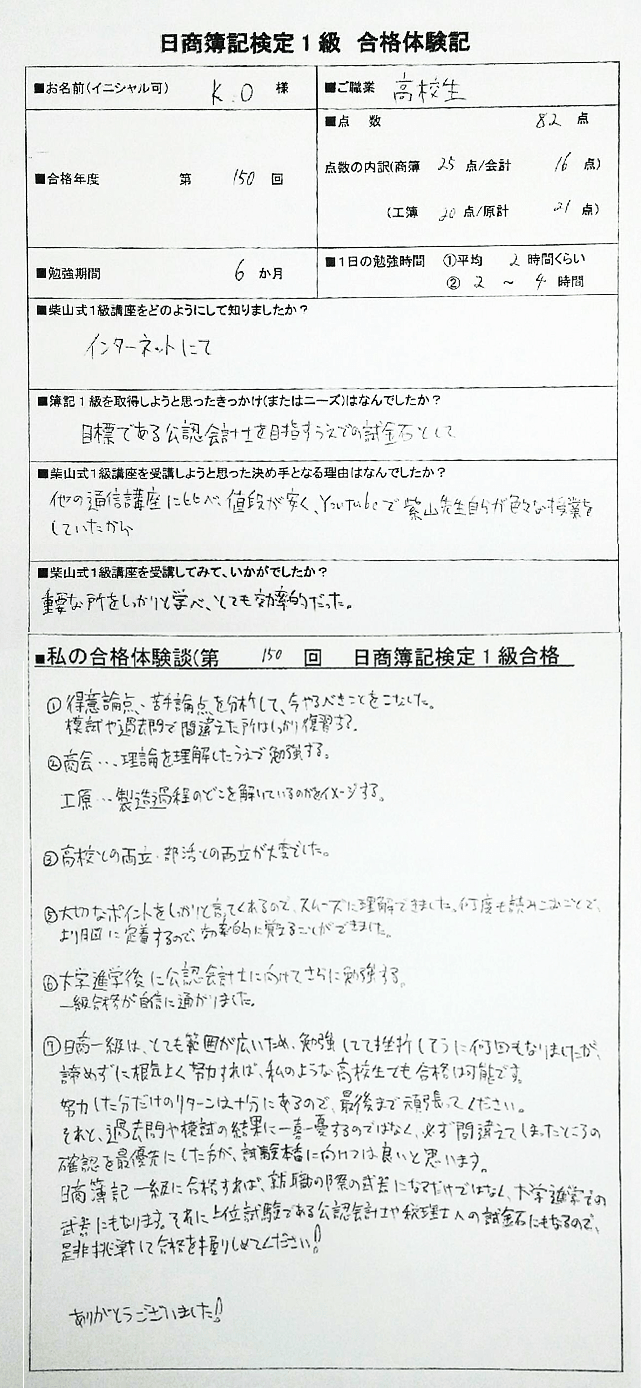 日商簿記検定1級 合格体験記
■お名前(イニシャル可) K.O 様
■ご職業 高校生
■合格年度 第 150 回
■点 数 82 点
点数の内訳(商簿 25 点/会計 16 点)
(工簿 20 点/原計 21 点)
■勉強期間 6 か月
■1日の勉強時間 ①平均 2 時間くらい
② 2 ～ 4 時間
■柴山式1級講座をどのようにして知りましたか?
インターネットにて
■簿記1級を取得しようと思ったきっかけ(またはニーズ)はなんでしたか?
目標である公認会計士を目指すうえでの試金石として
■柴山式1級講座を受講しようと思った決め手となる理由はなんでしたか?
他の通信講座に比べ、値段が安く、Youtubeで柴山先生自分が色々な授業を
していたから
■柴山式1級講座を受講してみて、いかがでしたか?
重要な所をしっかりと学べ、とても効率的だった。
■私の合格体験談(第 150 回 日商簿記検定1級合格
①得意論点、苦手論点を分析して、今やるべきことをこなした。
模試や過去問で間違えた所はしっかり復習する。
②商会…理論を理解したうえで勉強する。
工原…製造過程のどこを解いているのかをイメージする。
③高校との両立・部活との両立が大変でした。
⑤大切なポイントをしっかりと言てくれるので、スムーズに理解できました。何度も読みこむことで、
より月図に定着するので、効率的に覚えることができました。
⑥大学進学後に公認会計士に向けてさらに勉強する。
一級合格が自信に通がりました。
⑦日商一級は、とても範囲が広いため、勉強してて挫折しそうに何回もなりましたが、
諦めずに根気よく努力すれば、私のような高校生でも合格は可能です。
努力した分だけのリターンは十分にあるので、最後まで頑張ってください。
それと、過去問や模試の結果に一喜一憂するのではなく、必ず間違えてしまったところの
確認を最優先にした方が、試験本番に向けては良いと思います。
日商簿記一級に合格すれば、就職の際の武器になるだけではなく、大学進学での
武器にもなります。それに上位試験である公認会計士や税理士への試金石にもなるので、
是非挑戦して合格を握りしめてください!
ありがとうございました!